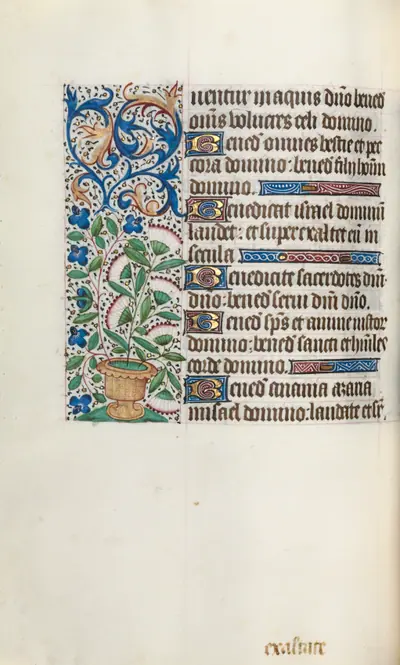 uentur in aquis dño bened
om̄s volucres celi domino.
Bened omnes bestie et pec
cora domino: bened filii hoīm
domino.
Benedicat israel dominū
laudet: et superexaltet eū in
secula
Benedicite sacerdotes dñi
dño: bened serui dñi dño.
Bened sp̄s et anime iustor
domino: bened sancti et hūiles
corde domino.
Bened anania azaria
misael domino: laudate et sr̄
exaltate